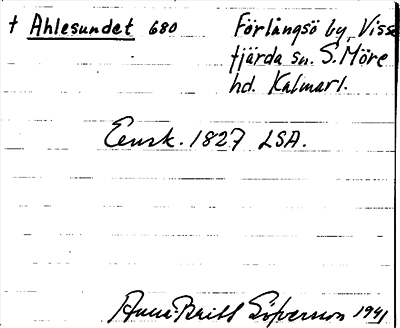 † Ahlesundet 680 Förlångsö by, Visse
fjärda sn. S. Möre
hd. Kalmarl.
Ensk. 1827 LSA.
Anna-Britt 1941